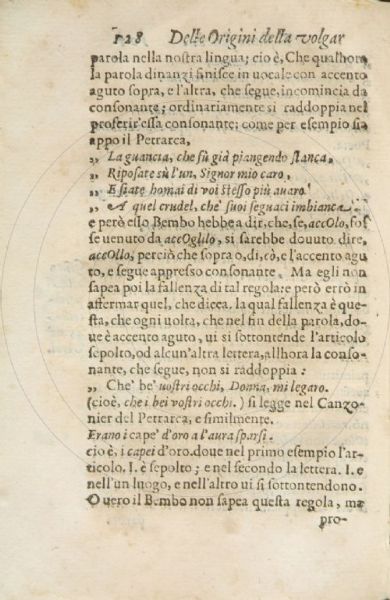 128 Delle Origini della volgar
parola nella nostra lingua; cioè, Che qualhora
la parola dinanzi finisce in uocale con accento
aguto sopra, e l'altra, che segue, incomincia da
consonante; ordinariamente si raddoppia nel
proferir'essa consonante; come per esempio sia
appo il Petrarca,
„ La guancia, che fù già piangendo stanca,
„ Riposate sù l'un, Signor mio caro,
„ E siate homai di voi stesso più auaro
„ A quel crudel, che' suoi seguaci imbianca.
e però esso Bembo hebbe a dir, che, se, accOlo, fos
se uenuto da accOglilo, si sarebbe douuto dire,
accOllo, perciò che sopra o, di, cò, e l'accento agu
to, e segue appresso consonante. Ma egli non
sapea poi la fallenza di tal regola: e però errò in
affermar quel, che dicea. la qual fallenza è que-
sta, che ogni uolta, che nel fin della parola, do-
ue è accento aguto, ui si sottontende l'articolo
sepolto, od alcun'altra lettera, allhora la conso-
nante, che segue, non si raddoppia:
„ Che' be' uostri occhi, Donna, mi legaro.
(cioè, che i bei vostri occhi.) si legge nel Canzo-
nier del Petrarca, e similmente.
Erano i cape' d'oro a l'aura sparsi.
cio è, i capei d'oro. doue nel primo esempio l'ar-
ticolo, I. è sepolto; e nel secondo la lettera. I. e
nell'un luogo, e nell'altro ui si sottontendono.
O uero il Bembo non sapea questa regola, ma
pro-